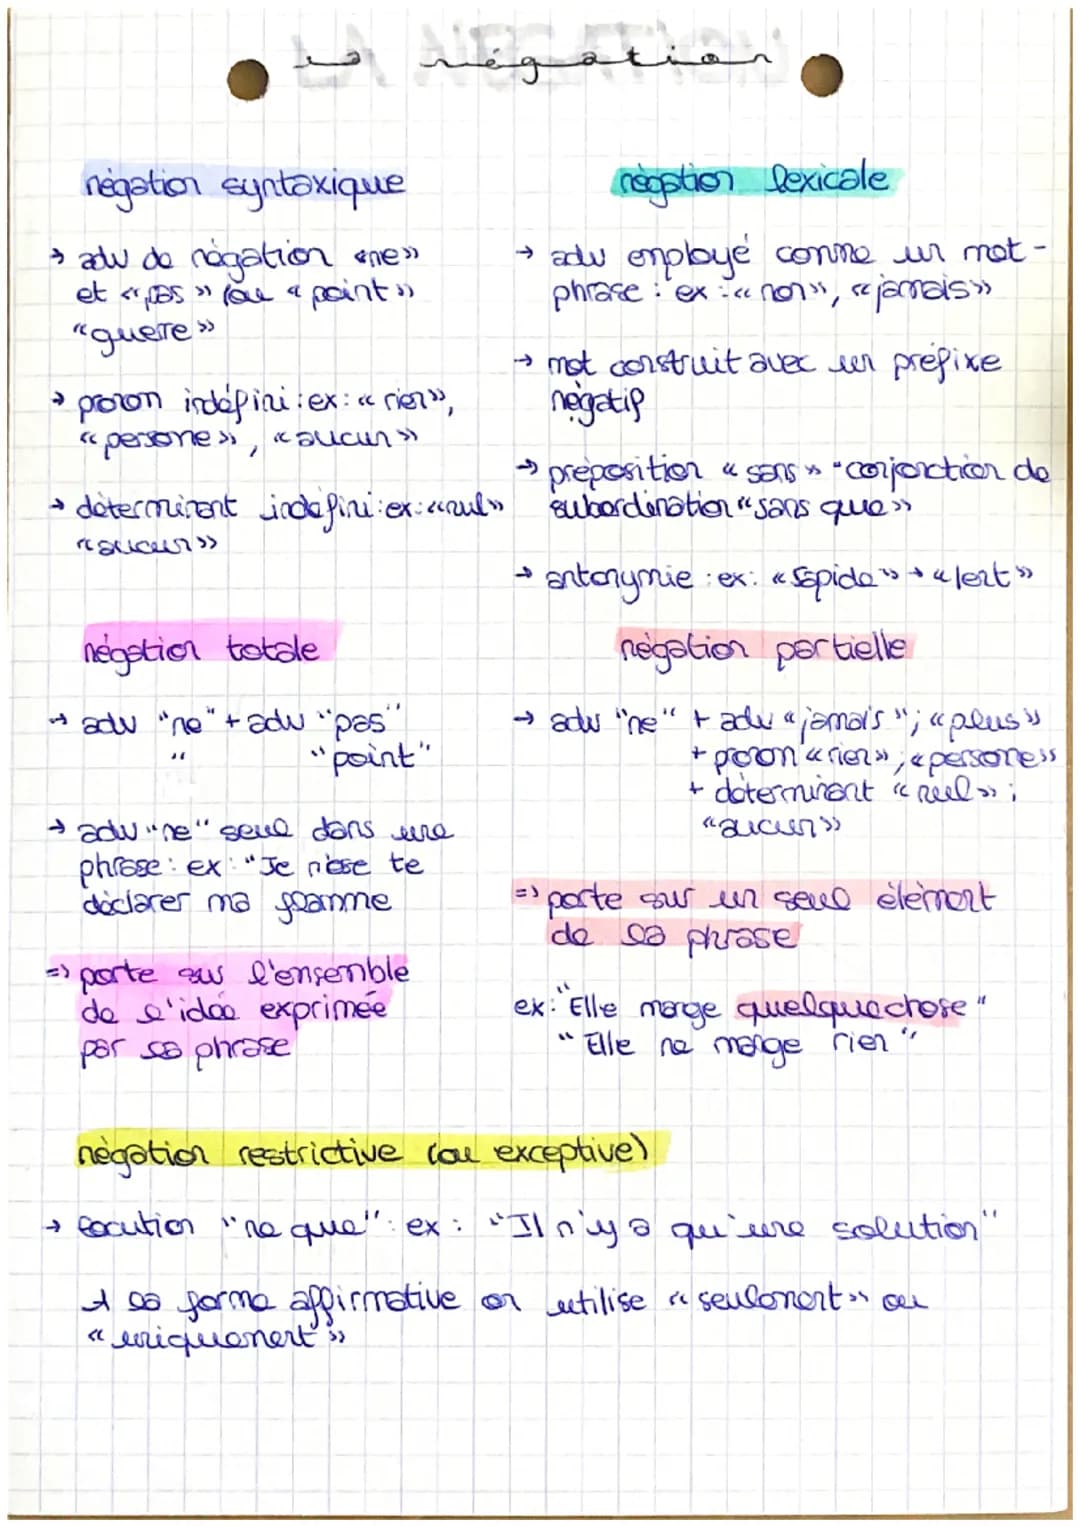 la négation
négation syntaxique
→ adv de négation «ne»
et «pas» (ou «point»
"guere»
→ pronom indéfini : ex : «rien»,
«persone», «aucun»
→ déterminant indéfini : ex : «nul»
«aucun»
négation lexicale
→ adv employé comme un mot-
phrase : ex : «non», «jamais»
→ mot construit avec un préfixe
négatif
→ préposition «sans» - conjonction de
subordination "sans que»
→ antonymie : ex : «rapide» → «lent»
négation totale
→ adv "ne" + adv "pas"
" "point"
→ adv "ne" seul dans une
phrase : ex : "Je n'ose te
déclarer ma flamme
=> porte sur l'ensemble
de l'idée exprimée
par la phrase
négation partielle
→ adv "ne" + adv «jamais"; «plus»
+ pronom «rien»; «persone»
+ déterminant «nul» ;
"aucun»
=> porte sur un seul élément
de la phrase
ex : "Elle mange quelquechose"
"Elle ne mange rien"
négation restrictive (ou exceptive)
→ locution "ne que" : ex : "Il n'y a qu'une solution"
A la forme affirmative on utilise «seulement» ou
«uniquement»